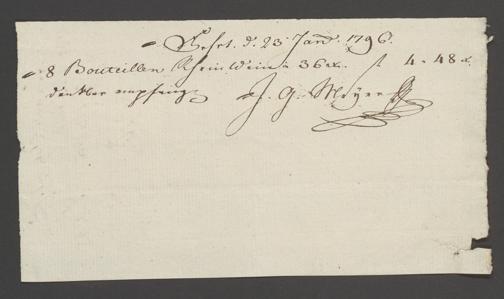 d. 23 Janr. 1796.
8 Bouteillen Rheinwein a 36 x. f 4 " 48 x.
dankbar empfangen J. G. Meyer